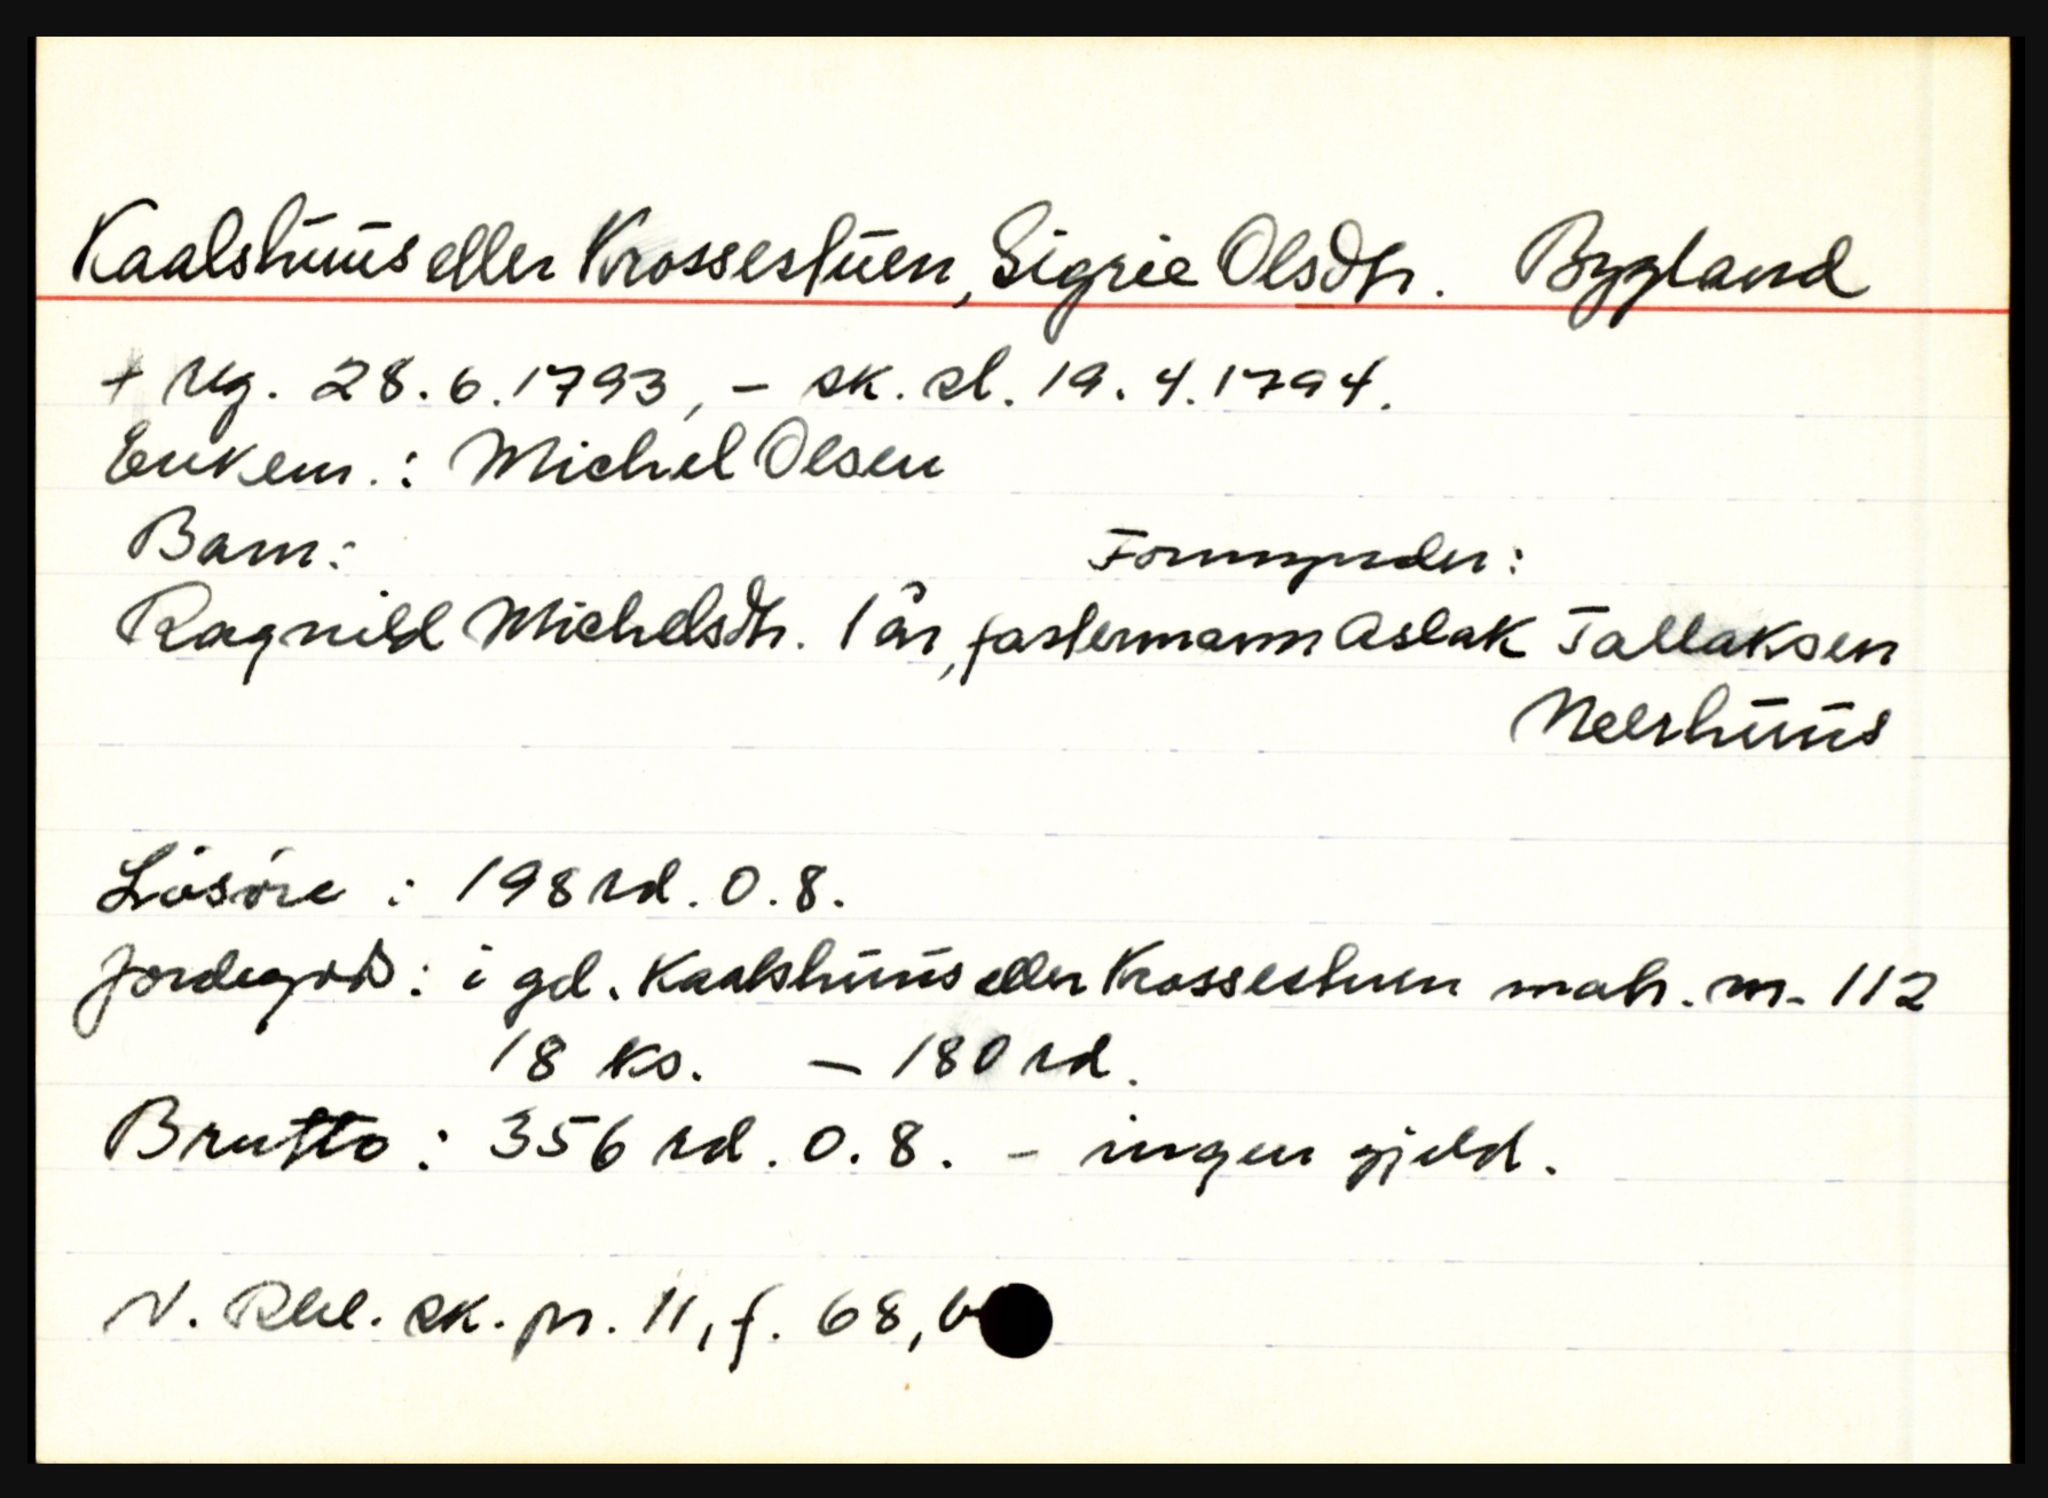 Kaalshuus eller Krossestuen, Sigrie Olsdtr. Bygland
+ reg. 28.6.1793, - sk. sl. 19.4.1794.
Enkem.: Michel Olsen
Barn: Formynder:
Ragnild Michelsdtr. 1 år, fastermann Aslak Tallaksen
Neershuus
Lösöre : 198 rd. 0.8.
Jordegods: i gd. Kaalshuus eller Krossestuen matr. nr. 112
18 ks. - 180 rd.
Brutto: 356 rd. 0.8. - ingen gjeld.
N. Rbl. sk. pr. 11, f. 68, b